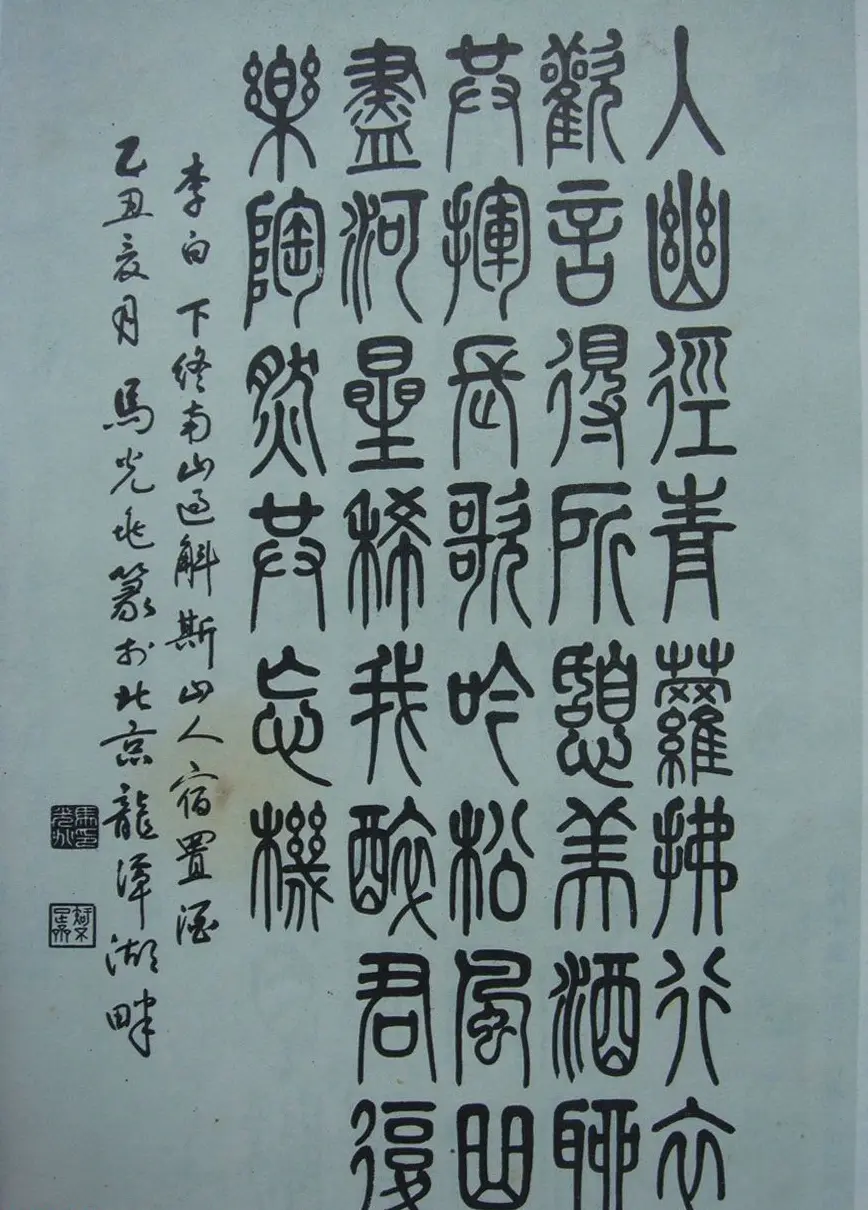 人幽徑青蘿拂行衣
歡言得所憩美酒聊
共揮長歌吟松風曲
盡河星稀我醉君復
樂陶然共忘機
李白 下終南山過斛斯山人宿置酒
乙丑亥月 馬光兆篆於北京龍潭湖畔